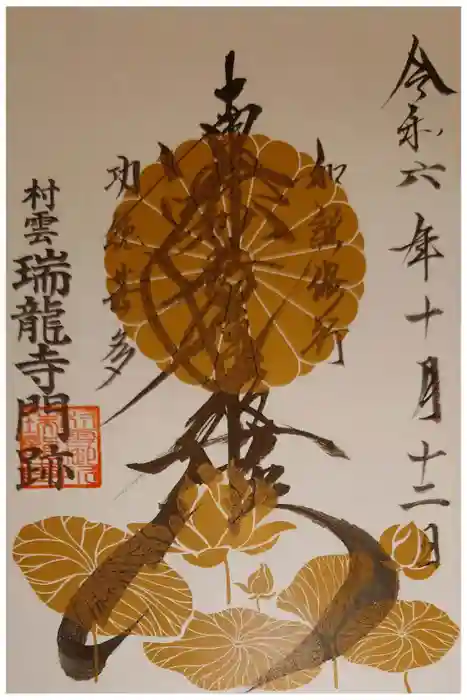 令和六年十月十二日
如説修行
南無妙法蓮華経
功徳甚多
村雲瑞龍寺門跡